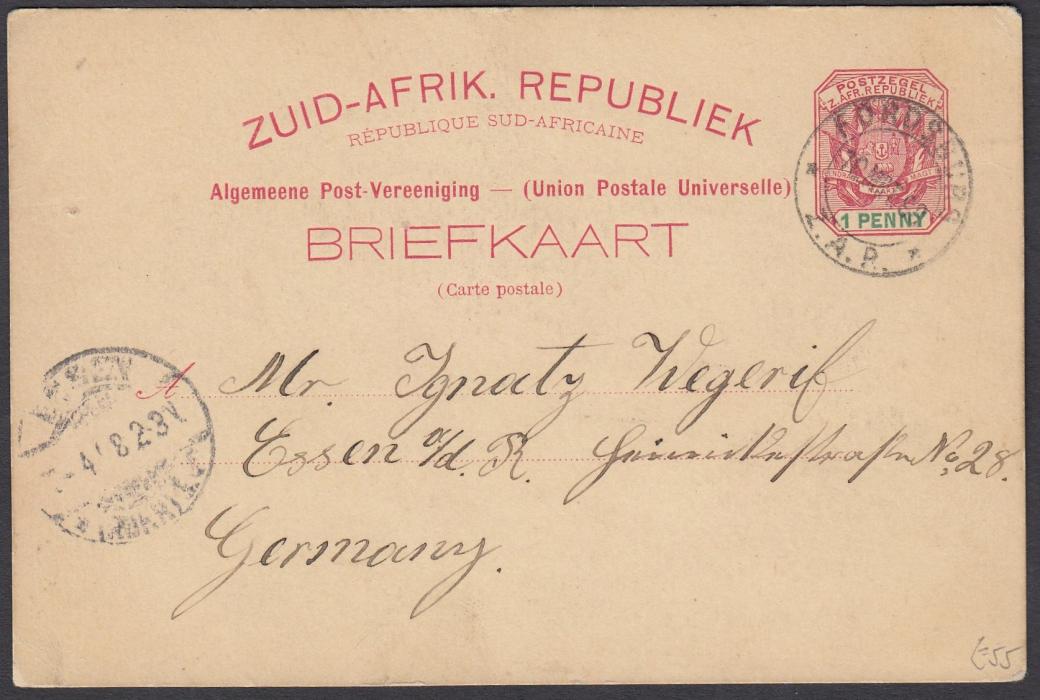 ZUID-AFRIK. REPUBLIEK
RÉPUBLIQUE SUD-AFRICAINE
Algemeene Post-Vereeniging — (Union Postale Universelle)
BRIEFKAART
(Carte postale)
POSTZEGEL
Z. AFR. REPUBLIEK
EENDRAGT MAAKT MAGT
1 PENNY
FORDSBURG
Z.A.R.
A Mr. Ignatz Wegerif
Essen a/d. R. No. 28.
Germany.
ESSEN
4 8 2-3V
£55